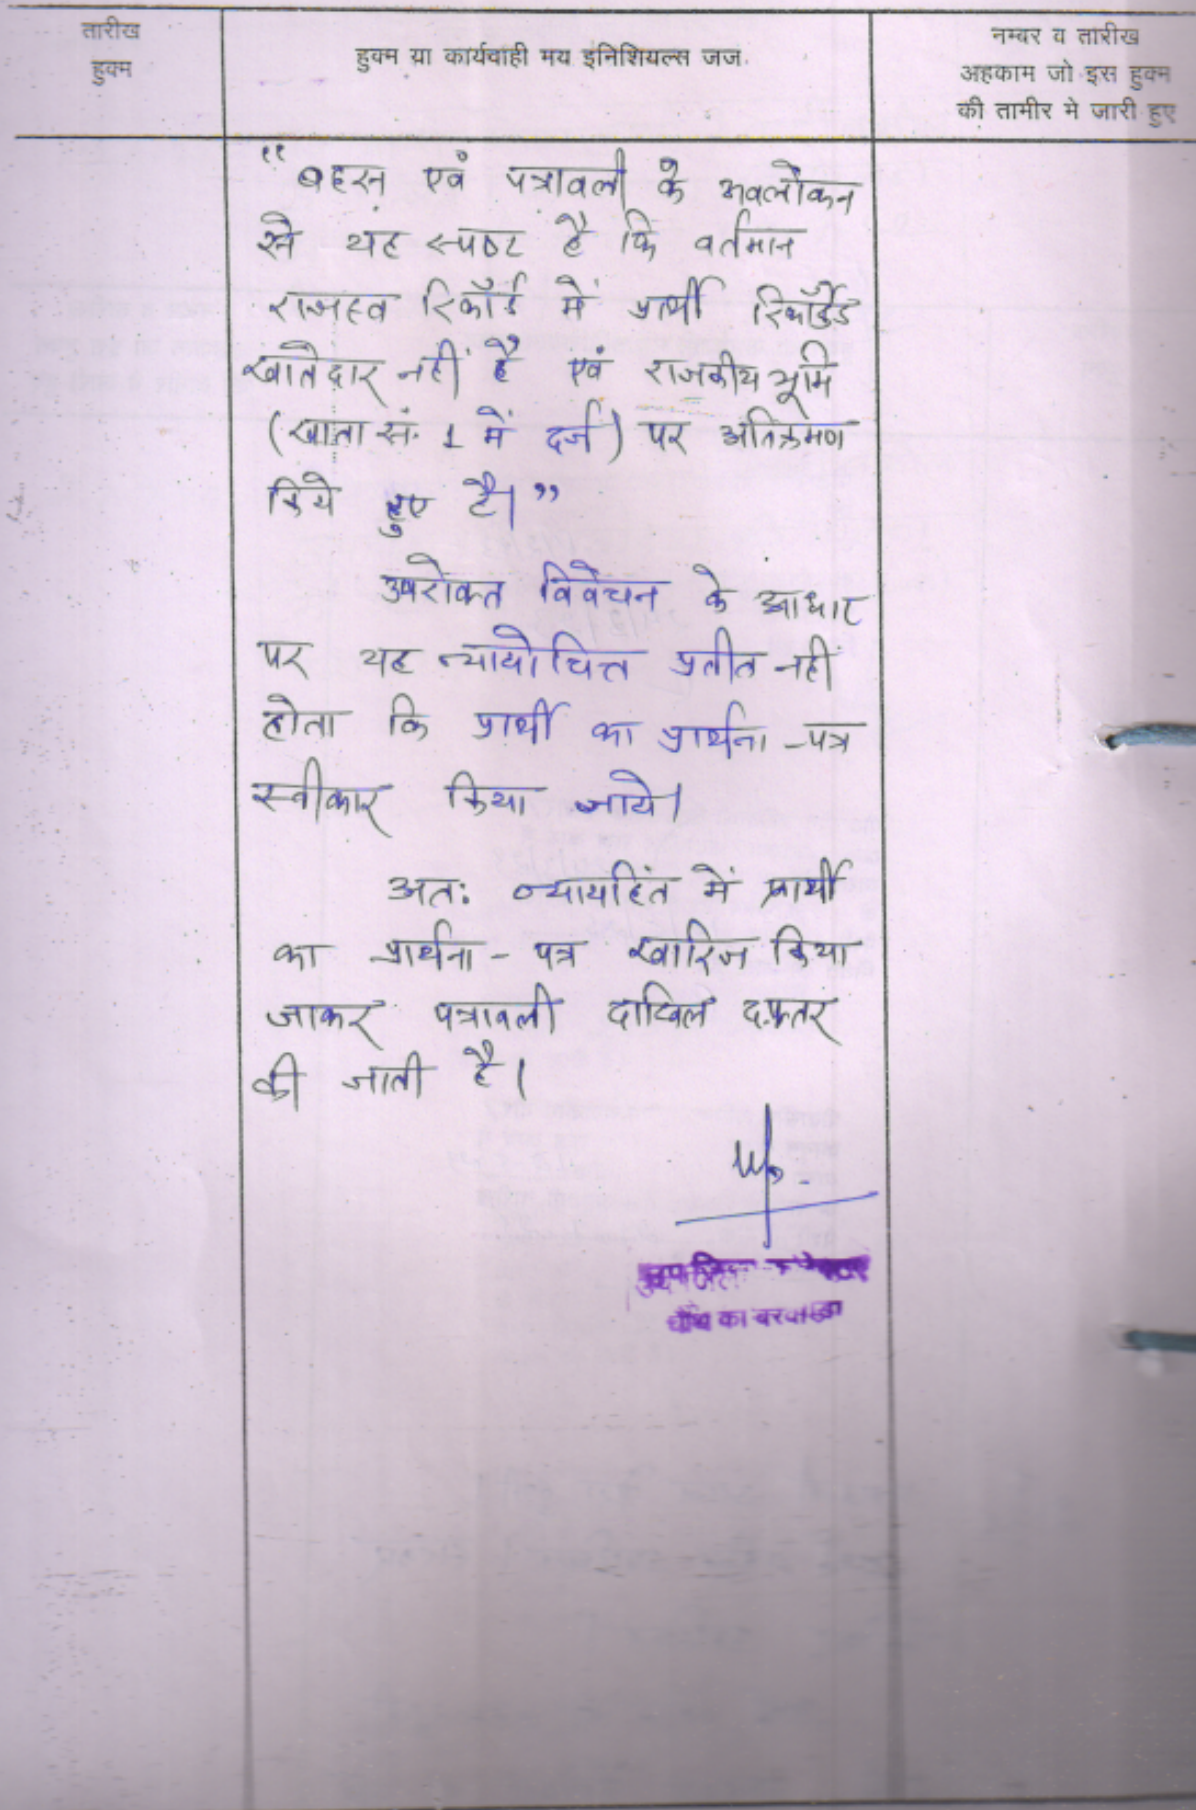 तारीख
हुक्म
हुक्म या कार्यवाही मय इनिशियल्स जज.
नम्बर व तारीख
अहकाम जो इस हुक्म
की तामीर मे जारी हुए
“बहस एवं पत्रावली के अवलोकन
से यह स्पष्ट है कि वर्तमान
राजस्व रिकॉर्ड में प्रार्थी रिकॉर्डेड
खातेदार नहीं है एवं राजकीय भूमि
(खाता सं. 1 में दर्ज) पर अतिक्रमण
किये हुए है।”
उपरोक्त विवेचन के आधार
पर यह न्यायोचित्त प्रतीत नहीं
होता कि प्रार्थी का प्रार्थना-पत्र
स्वीकार किया जाये।
अतः न्यायहित में प्रार्थी
का प्रार्थना-पत्र खारिज किया
जाकर पत्रावली दाखिल दफ़तर
की जाती है।
चौथ का बरवाड़ा